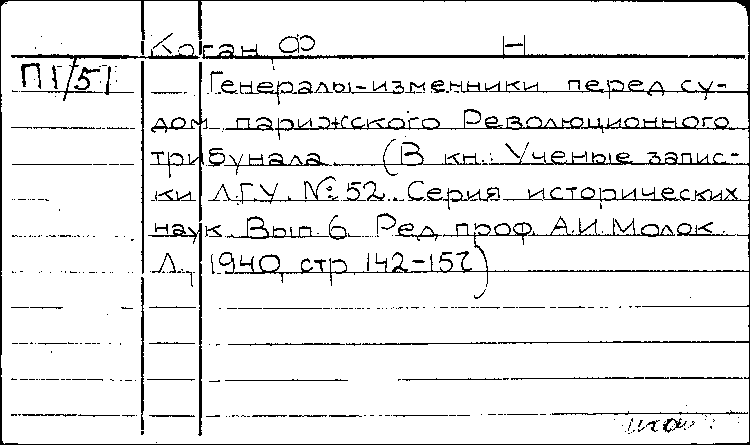 Коган, Ф Н
П I/51 — Генералы-изменники перед су-
дом парижского Революционного
трибунала. (В кн.: Ученые запис-
ки Л.Г.У. №52. Серия исторических
наук. Вып. 6. Ред. проф. А.И. Молок.
Л., 1940, стр. 142-157)